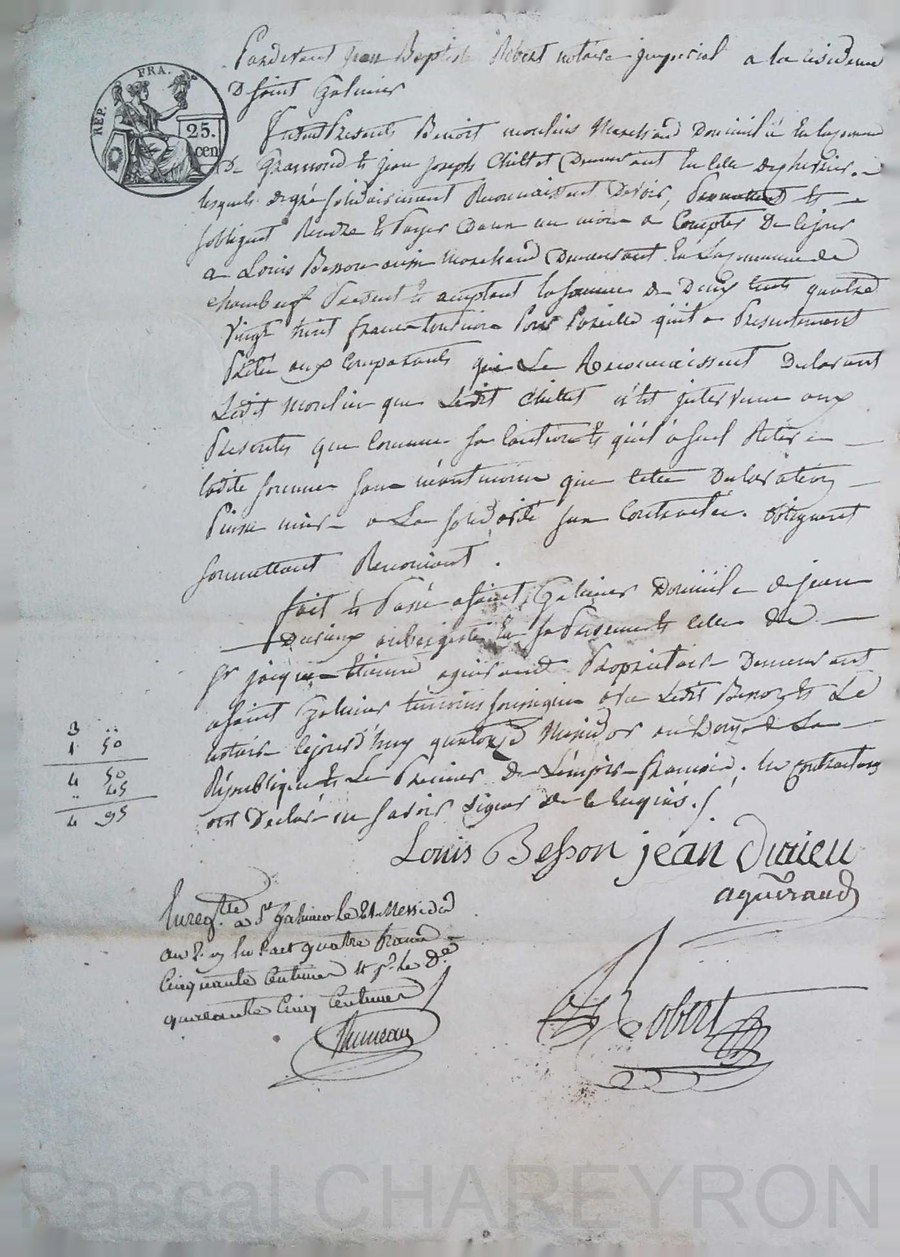 REP. FRA.
25.
cen
Pardevant Jean Baptiste Robert notaire imperial a la residence
D Saint Galmier
Furent Presents Benoit moulin Marchand Domicilié en la commune
De Gramond et Jean Joseph Chillet Demeurant en celle de
lesquels de gré solidairement Reconnaissent Devoir, Promettent et
sobligent Rendre et Payer Dans un mois a Compter De ce jour
a Louis Besson aussi Marchand Demeurant en la Commune de
chambeuf Present et acceptant la somme de Deux Cents quatre
Vingt huit francs Pour Pareille quil a Presentement
Prêté aux Comparants qui Le Reconnaissent Declarant
Ledit Moulin que Ledit Chillet n'est intervenu aux
Presentes que Comme sa Caution et quil a seul Retiré
ladite somme sans néantmoins que cette Declaration
Puisse nuire a La Solidarité sus Contractée. obligeant
soumettant Renoncant.
fait et Passé a Saint Galmier Domicile de jean
Durieux aubergiste en sa Presence et celle de
Sr jacques Etienne aguiraud Proprietaire Demeurant
a Saint Galmier temoins soussignes avec Ledit Besson et Le
notaire cejourd'huy quatorze Messidor an Douze de La
République et Le Premier de L'empire francois. les contractans
ont Declaré ne savoir signer de ce Requis.
3 ..
1 50
4 50
.. 45
4 95
Louis Besson jean Durieu
aguiraud
Enregtré a St Galmier Le 21 Messidor
an 12 quatre francs
Cinquante Centimes
quarante Cinq Centimes
Robert
Pascal CHAREYRON